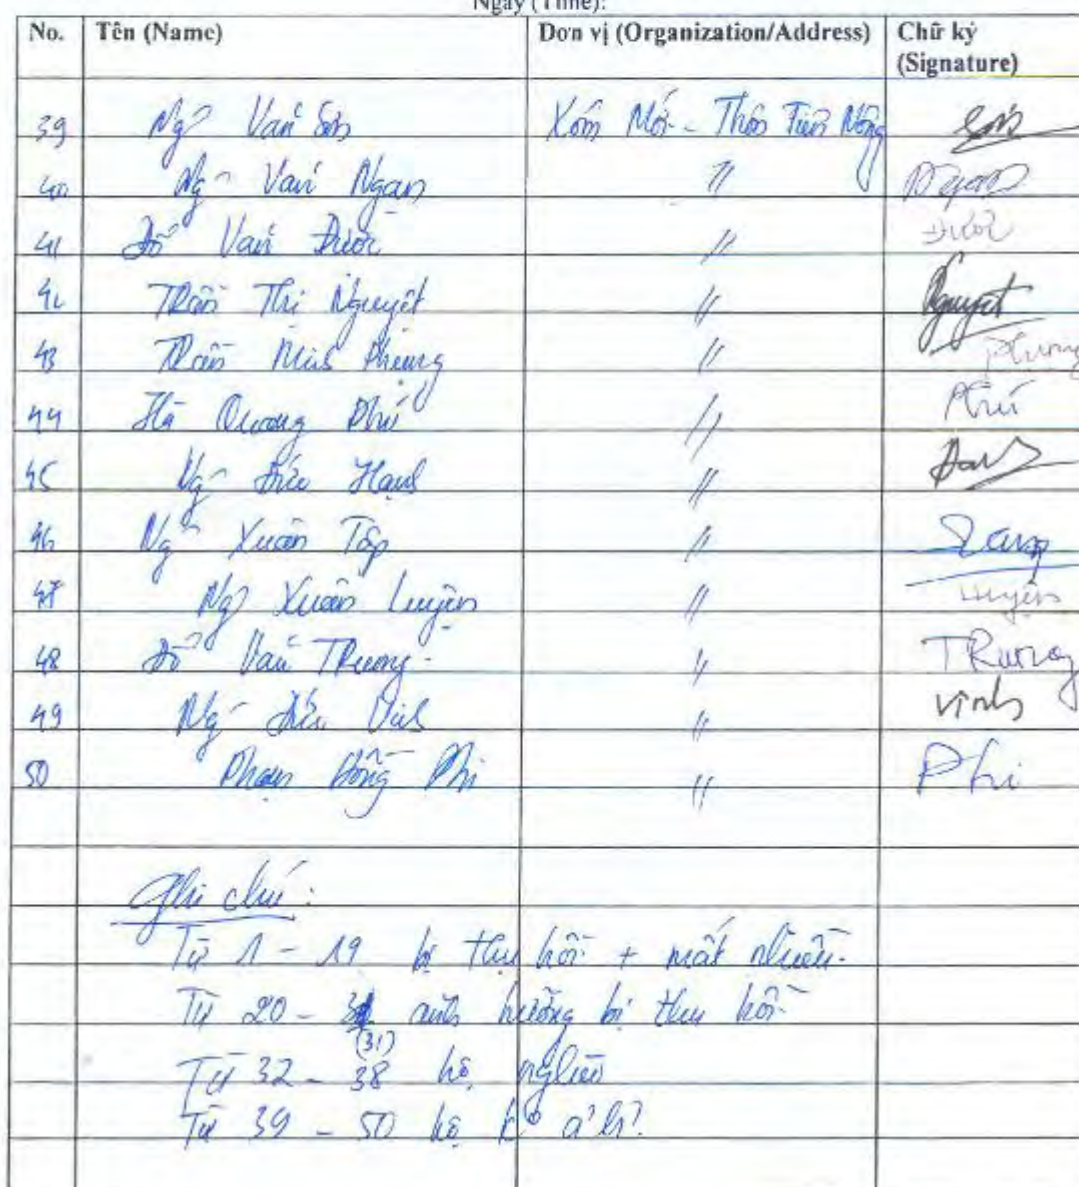 Ngày (Time):
No. Tên (Name) Đơn vị (Organization/Address) Chữ ký (Signature)
39 Ngô Văn Sơn Xóm Mới - Thôn Tiên Nông Sơn
40 Ngô Văn Ngạn " Ngạn
41 Đỗ Văn Được " Được
42 Trần Thị Nguyệt " Nguyệt
43 Trần Minh Phương " Phương
44 Hà Quang Phú " Phú
45 Ngô Đức Hạnh "
46 Ngô Xuân Tập "
47 Ngô Xuân Luyện " Luyện
48 Đỗ Văn Trương " Trương
49 Ngô Đức Vinh " Vinh
50 Phạm Hồng Phi " Phi
Ghi chú:
Từ 1 - 19 bị thu hồi + mất nhiều.
Từ 20 - 31 ảnh hưởng bị thu hồi
(31)
Từ 32 - 38 hộ nghèo
Từ 39 - 50 hộ ko a'h?